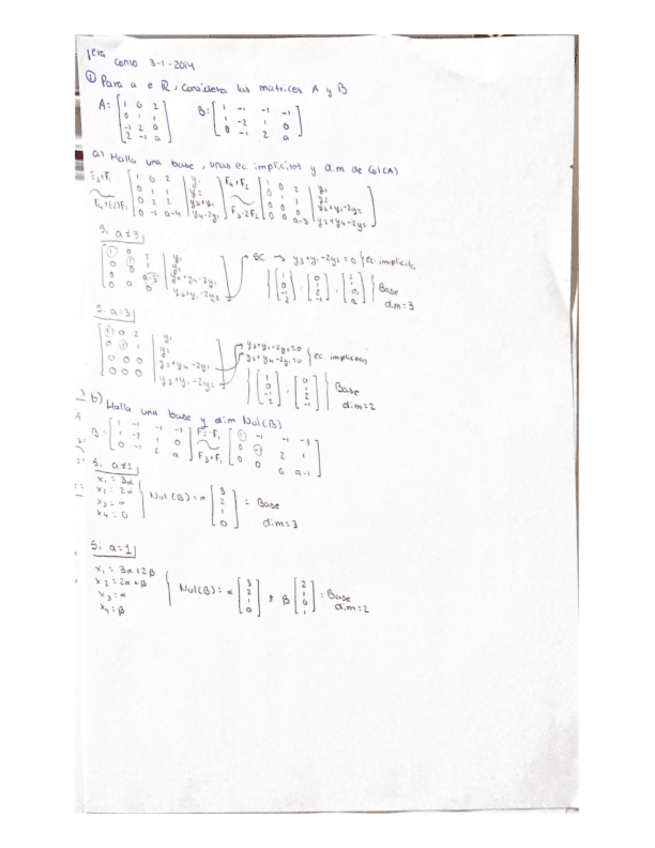 1era Convo 3-1-2014
① Para a ∈ ℝ, considera las matrices A y B
A = [1 0 2; 0 1 1; -1 2 0; 2 -1 a] B = [1 -1 -1 -1; 1 -2 1 0; 0 -1 2 a]
a) Halla una base, unas ec. implicitas y dim de Col(A)
F3+F1 F4+(-2)F1 [1 0 2 | y1; 0 1 1 | y2; 0 2 2 | y3+y1; 0 -1 a-4 | y4-2y1] F4+F2 F3-2F2 [1 0 2 | y1; 0 1 1 | y2; 0 0 0 | y3+y1-2y2; 0 0 a-3 | y2+y4-2y1]
Si a≠3
SC → y3+y1-2y2=0 } ec. implicita
Base
dim=3
Si a=3
[1 0 2 | y1; 0 1 1 | y2; 0 0 0 | y2+y4-2y1; 0 0 0 | y3+y1-2y2]
y3+y1-2y2=0
y2+y4-2y1=0 } ec implicitas
{[1 0 -1 2], [0 1 2 -1]} Base
dim=2
b) Halla una base y dim Nul(B)
B = [1 -1 -1 -1; 1 -2 1 0; 0 -1 2 a] F2-F1 [1 -1 -1 -1; 0 -1 2 1; 0 0 0 a-1]
Si a≠1
x1 = 3α
x2 = 2α
x3 = α
x4 = 0
Nul(B) = α [3 2 1 0] = Base
dim=3
Si a=1
x1 = 3α+2β
x2 = 2α+β
x3 = α
x4 = β
Nul(B) = α [3 2 1 0] , β [2 1 0 1] = Base
dim=2